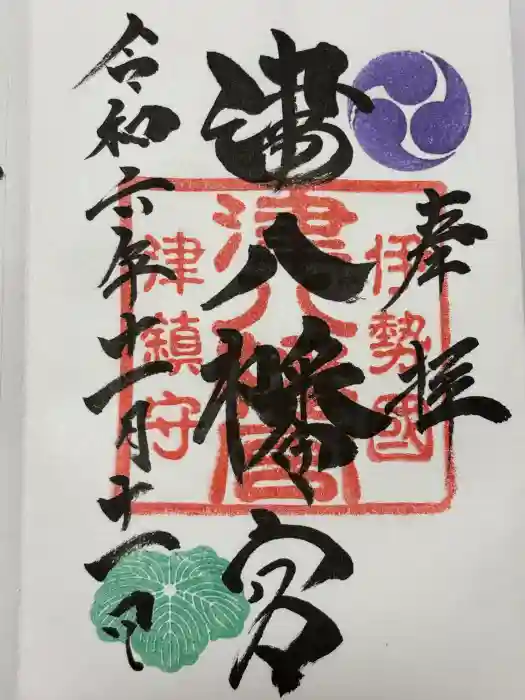 奉拝
津八幡宮
令和六年十一月十一日
伊勢國
津八幡宮
津鎮守